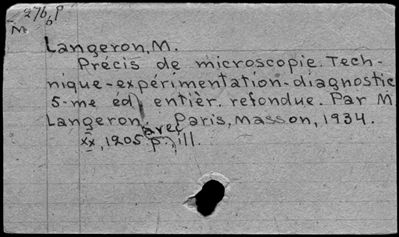 276 p
M
Langeron, M.
Précis de microscopie. Tech-
nique-expérimentation-diagnostic
5-me éd. entièr. refondue. Par M
Langeron avec Paris, Masson, 1934.
xx, 1205 p., ill.